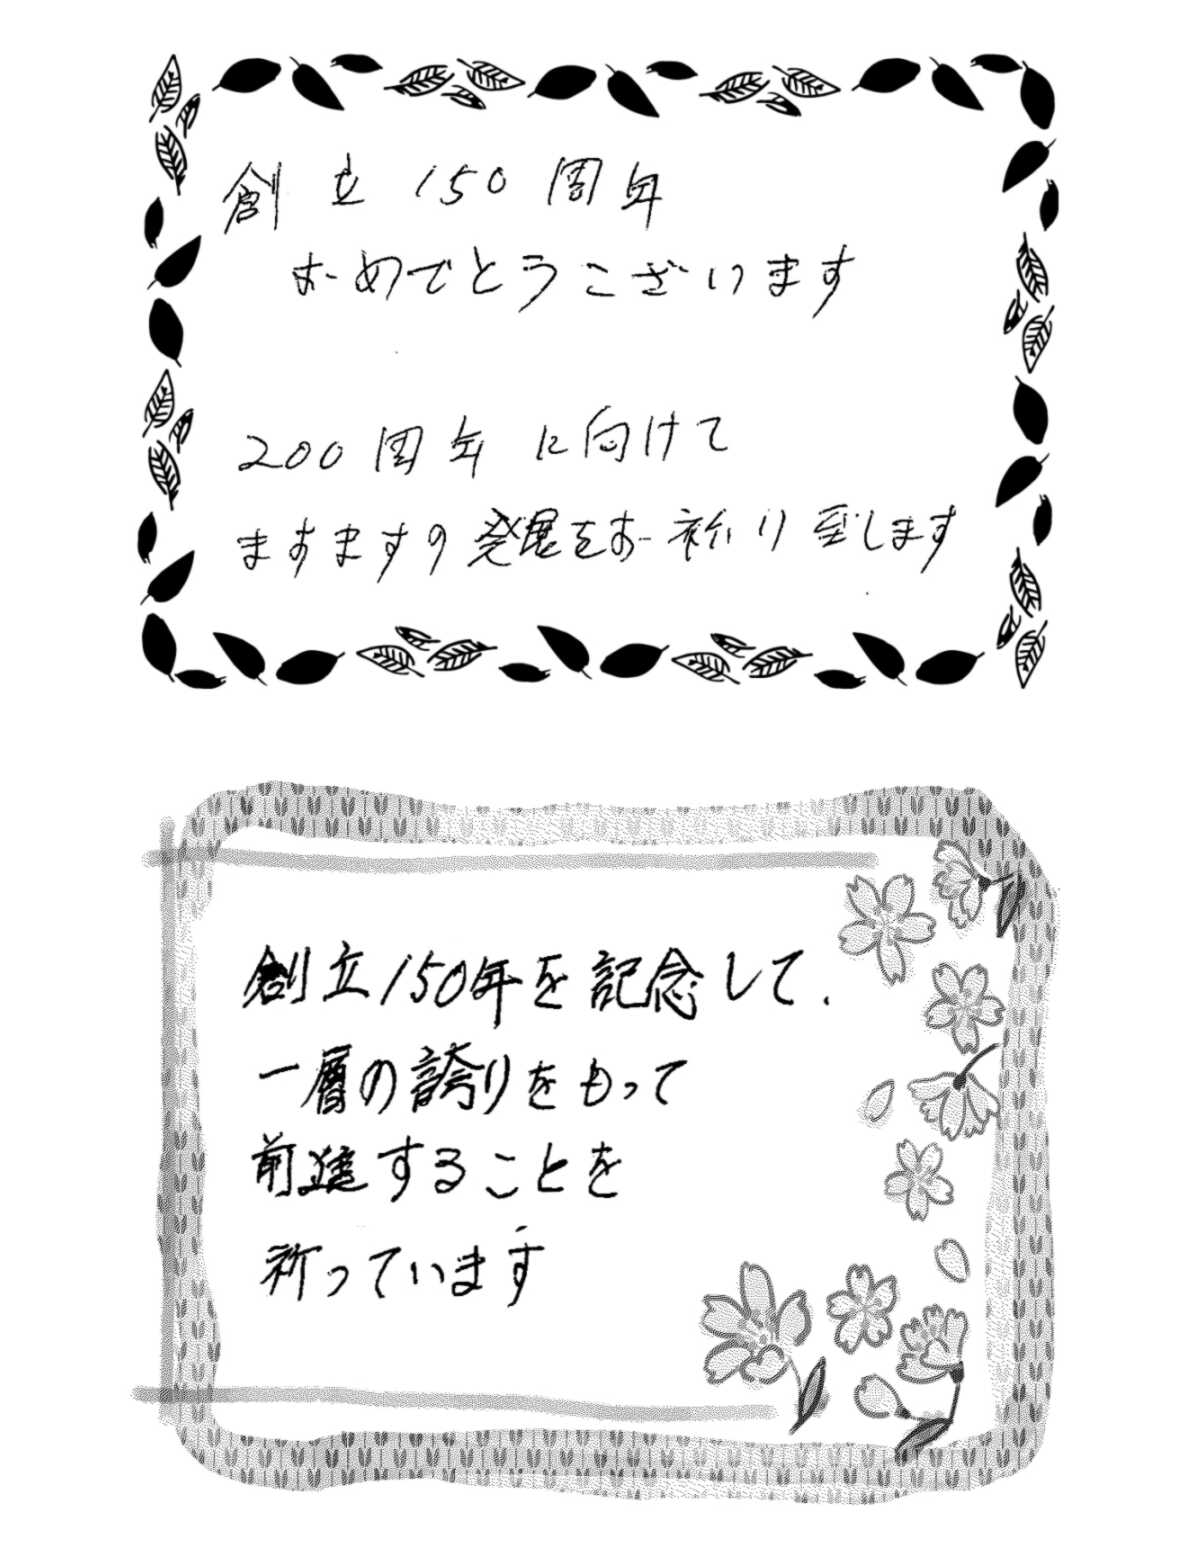 創立150周年
おめでとうございます
200周年に向けて
ますますの発展をお祈り致します
創立150年を記念して、
一層の誇りをもって
前進することを
祈っています